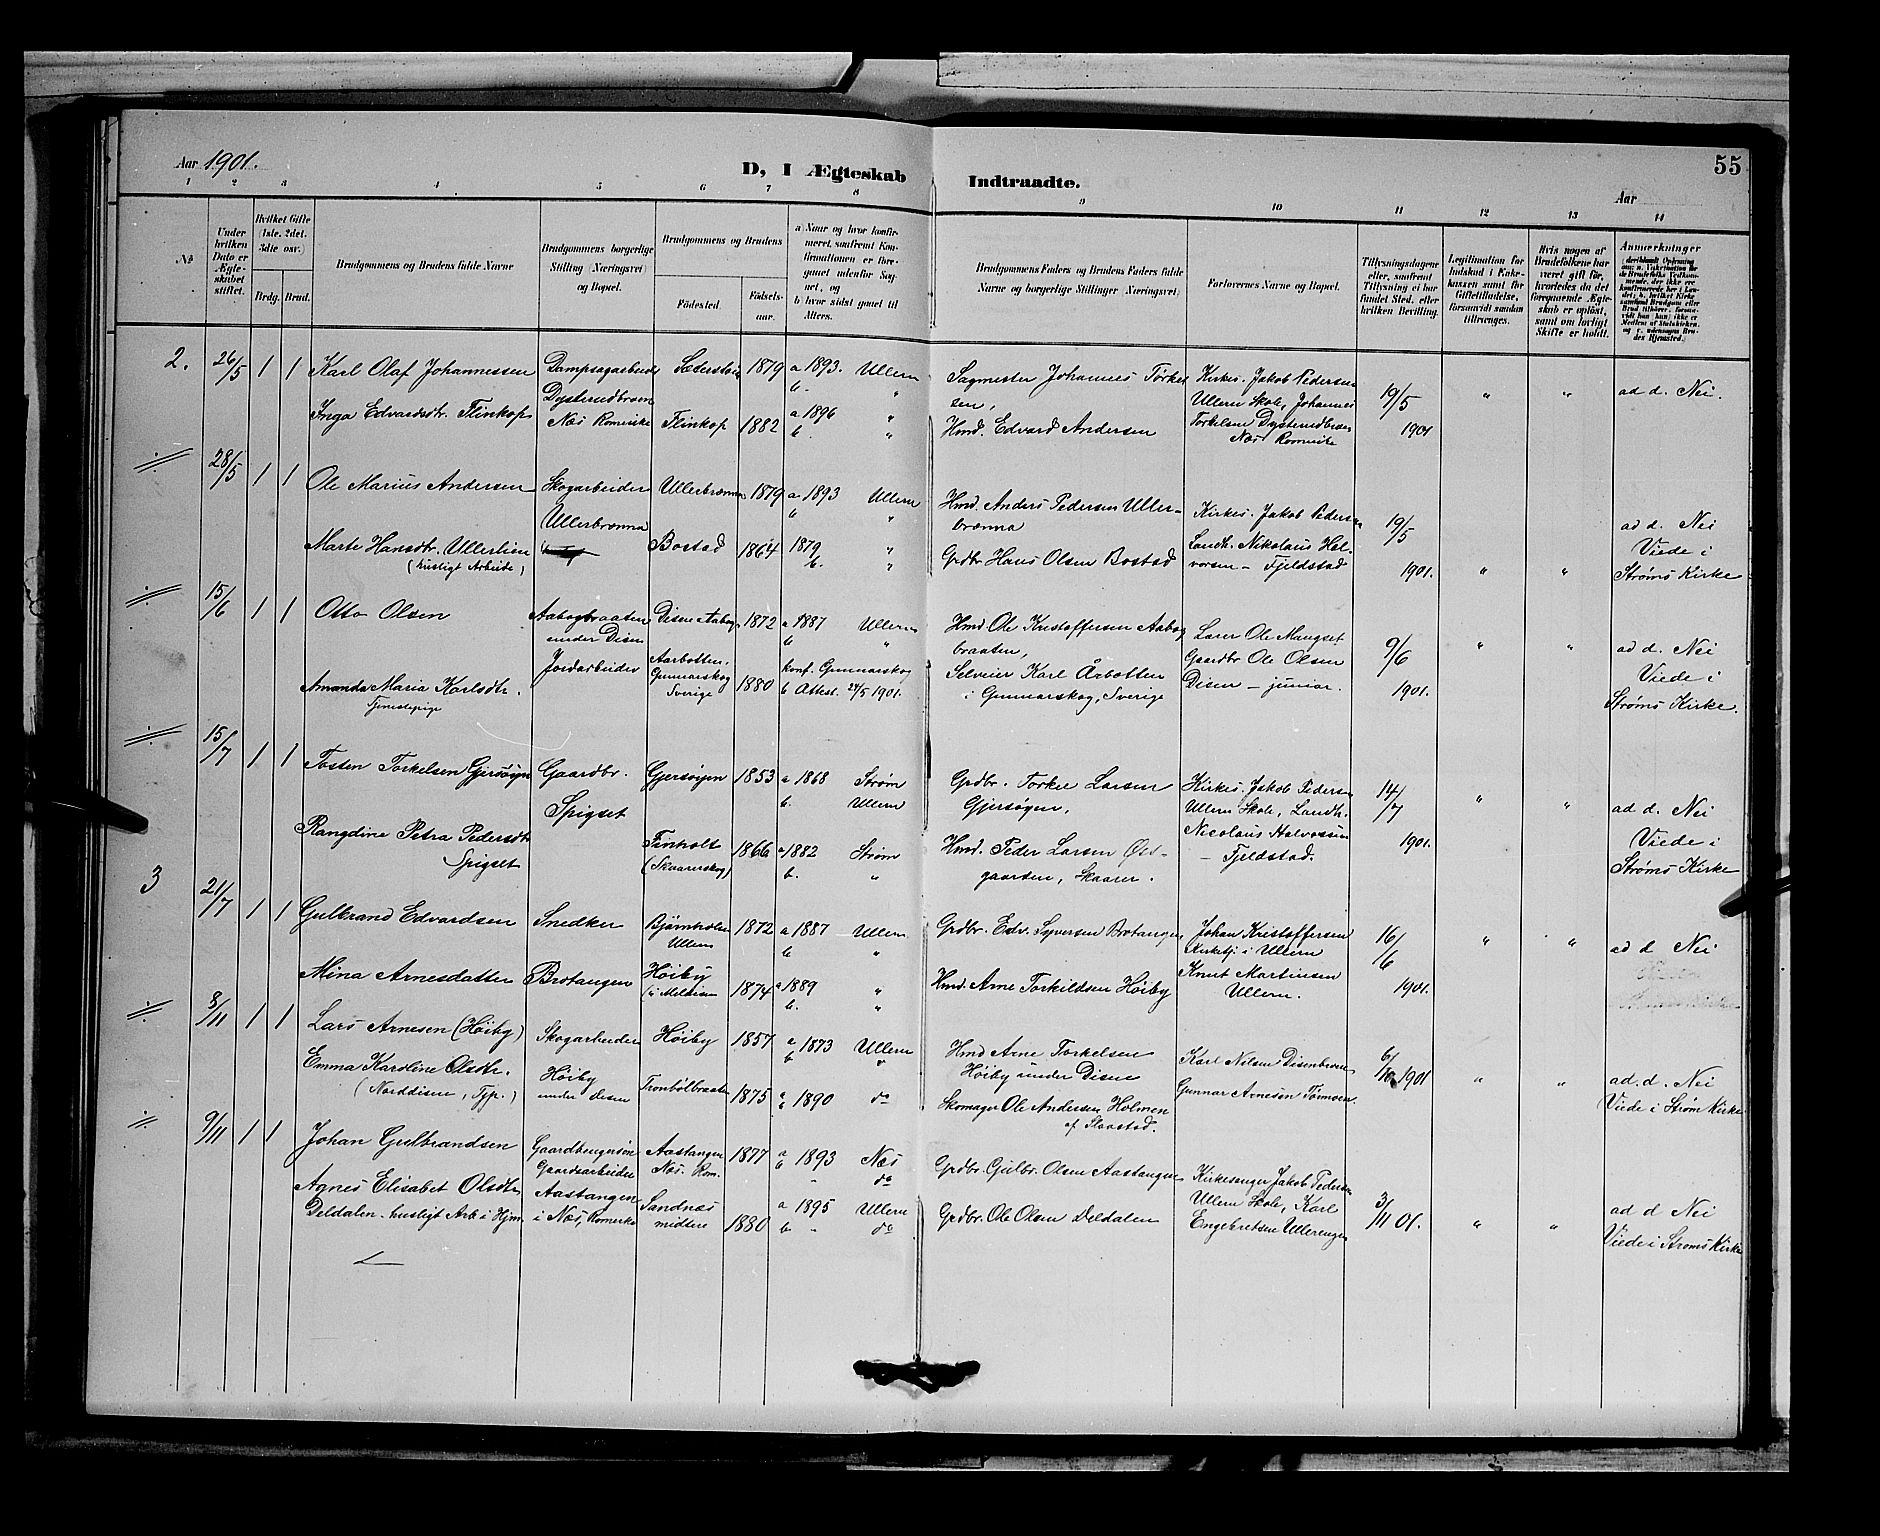 Aar 1901.
D, I Ægteskab Indtraadte.
55
Aar
1 2 3 4 5 6 7 8 9 10 11 12 13 14
No
Under hvilken Dato er Ægteskabet stiftet.
Hvilket Gifte (1ste, 2det, 3die osv.)
Brdg. Brud.
Brudgommens og Brudens fulde Navne
Brudgommens borgerlige Stilling (Næringsvei) og Bopæl.
Brudgommens og Brudens
Fødested. Fødselsaar.
a Naar og hvor konfirmeret, saafremt Konfirmationen er foregaaet udenfor Sognet, og
b hvor sidst gaaet til Alters.
Brudgommens Faders og Brudens Faders fulde Navne og borgerlige Stillinger (Næringsvei)
Forlovernes Navne og Bopæl.
Tillysningsdagene eller, saafremt Tillysning ei har fundet Sted, efter hvilken Bevilling.
Legitimation for Indskud i Enkekassen samt for Giftetilladelse, forsaavidt saadan tiltrænges.
Hvis nogen af Brudefolkene har været gift før, hvorledes da det foregaaende Ægteskab er opløst, samt om lovligt Skifte er holdt.
Anmerkninger
2. 26/5 1 1 Karl Olaf Johannessen Dampsagarbeid Sæterstøen 1879 a 1893. Ullern
Dysterudbroen b. "
Inga Edvardsdtr. Flinkop Næs Romerike Flinkop 1882 a 1896 "
b. "
Sagmester Johannes Torkelsen,
Hmd. Edvard Andersen
Kirkes. Jakob Pedersen
Ullern Skole, Johannes
Torkelsen Dysterudbroen
Næs Romerike
19/5 1901 " " ad d. Nei.
// 28/5 1 1 Ole Marius Andersen Skogarbeider Ullerbrænna 1879 a 1893 Ullern
Ullerbrænna b "
Marte Hansdtr. Ullerlien Bostad 1864 1879 "
(husligt Arbeide) b. "
Hmd. Anders Pedersen Ullerbrænna
Grdbr Hans Olsen Bostad
Kirkes. Jakob Pedersen
Landh. Nikolaus Halvorsen – Fjeldstad
19/5 1901. " " ad d. Nei
Viede i
Strøms Kirke
// 15/6 1 1 Otto Olsen Aabogbraaten Disen Aabog 1872 a 1887 Ullern
under Disen b "
Jordarbeider Aarbotten,
Gunnarskog konf. Gunnarskog
Amanda Maria Karlsdtr. Sverige 1880 b Attest. 24/5 1901.
Tjenestepige
Hmd Ole Kristoffersen Aabogbraaten,
Selveier Karl Årbotten
i Gunnarskog, Sverige
Lærer Ole Mangset
Gaardbr Ole Olsen
Disen – junior.
9/6 1901. " " ad d. Nei
Viede i
Strøms Kirke.
// 15/7 1 1 Tosten Torkelsen Gjersøyen Gaardbr. Gjersøyen 1853 a 1868 Strøm
Spigset b. Ullern
Rangdine Petra Pedersdtr Finholt 1866 a 1882 Strøm
Spigset (Skaarerskog) b. "
Grdbr. Torkel Larsen
Gjersøyen,
Hmd. Peder Larsen Østgaarden, Skaarer.
Kirkes. Jakob Pedersen
Ullern Skole, Landh.
Nicolaus Halvorsen
– Fjeldstad.
14/7 1901. " " ad d. Nei
Viede i
Strøms Kirke
3 21/7 1 1 Gulbrand Edvardsen Snedker Bjørnholen 1872 a 1887 Ullern
Ullern b "
Mina Arnesdatter Brotangen Høiby 1874 a 1889 "
b. "
Grdbr. Edv. Syversen Brotangen
Hmd. Arne Torkildsen Høiby
Johan Kristoffersen
Kirketj. i Ullern
Knut Martinsen
Ullern.
16/6 1901. " " ad d Nei
// 8/11 1 1 Lars Arnesen (Høiby) Skogarbeider Høiby 1857 a 1873 Ullern
b "
Emma Karoline Olsdtr. Høiby
(Norddisen, Tjp.) under Disen Tronbølbraaten 1875 a 1890 do
b
Hmd Arne Torkelsen
Høiby under Disen
Skomager Ole Andersen Holmen
af Slaastad.
Karl Nilsen Disenbroen
Gunnar Arnesen Tørmoen.
6/10 1901 " " ad. d. Nei
Viede i Strøm Kirke
// 9/11 1 1 Johan Gulbrandsen Gaardbrugersøn Aastangen 1877 a 1893 Næs
Gaardsarbeider Næs. Rom. b " do
Agnes Elisabet Olsdtr Aastangen Sandnæs a 1895 Ullern
Deldalen. husligt Arb. i Hjm. i Næs, Romerike midtre 1880 b " do
Grdbr. Gulbr. Olsen Aastangen
Grdbr. Ole Olsen Deldalen
Kirkesanger Jakob Pedersen
Ullern Skole, Karl
Engebretsen Ullerengen
3/11 01. " " ad d Nei
Viede i Strøms Kirke